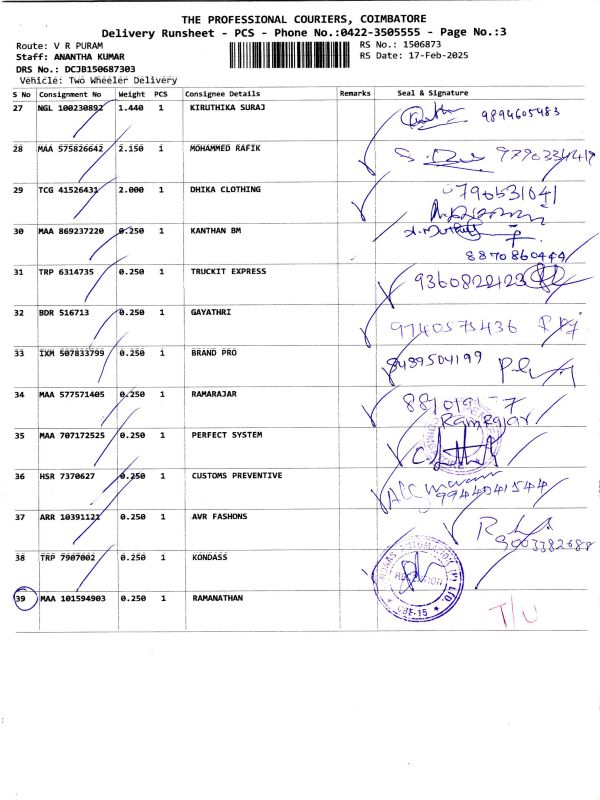 THE PROFESSIONAL COURIERS, COIMBATORE
Delivery Runsheet - PCS - Phone No.:0422-3505555 - Page No.:3
Route: V R PURAM RS No.: 1506873
Staff: ANANTHA KUMAR RS Date: 17-Feb-2025
DRS No.: DCJB150687303
Vehicle: Two Wheeler Delivery
S No Consignment No Weight PCS Consignee Details Remarks Seal & Signature
27 NGL 100230892 1.440 1 KIRUTHIKA SURAJ 9894605483
28 MAA 575826642 2.150 1 MOHAMMED RAFIK
29 TCG 41526431 2.000 1 DHIKA CLOTHING
30 MAA 869237220 0.250 1 KANTHAN BM
8870860444
31 TRP 6314735 0.250 1 TRUCKIT EXPRESS 9360822123
32 BDR 516713 0.250 1 GAYATHRI 9740575436
33 IXM 507833799 0.250 1 BRAND PRO 8489504199
34 MAA 577571405 0.250 1 RAMARAJAR
Ramrajar
35 MAA 707172525 0.250 1 PERFECT SYSTEM
36 HSR 7370627 0.250 1 CUSTOMS PREVENTIVE
9944041544
37 ARR 10391121 0.250 1 AVR FASHONS
9003382688
38 TRP 7907002 0.250 1 KONDASS
RECEPTION
CBE-15
39 MAA 101594903 0.250 1 RAMANATHAN T/U